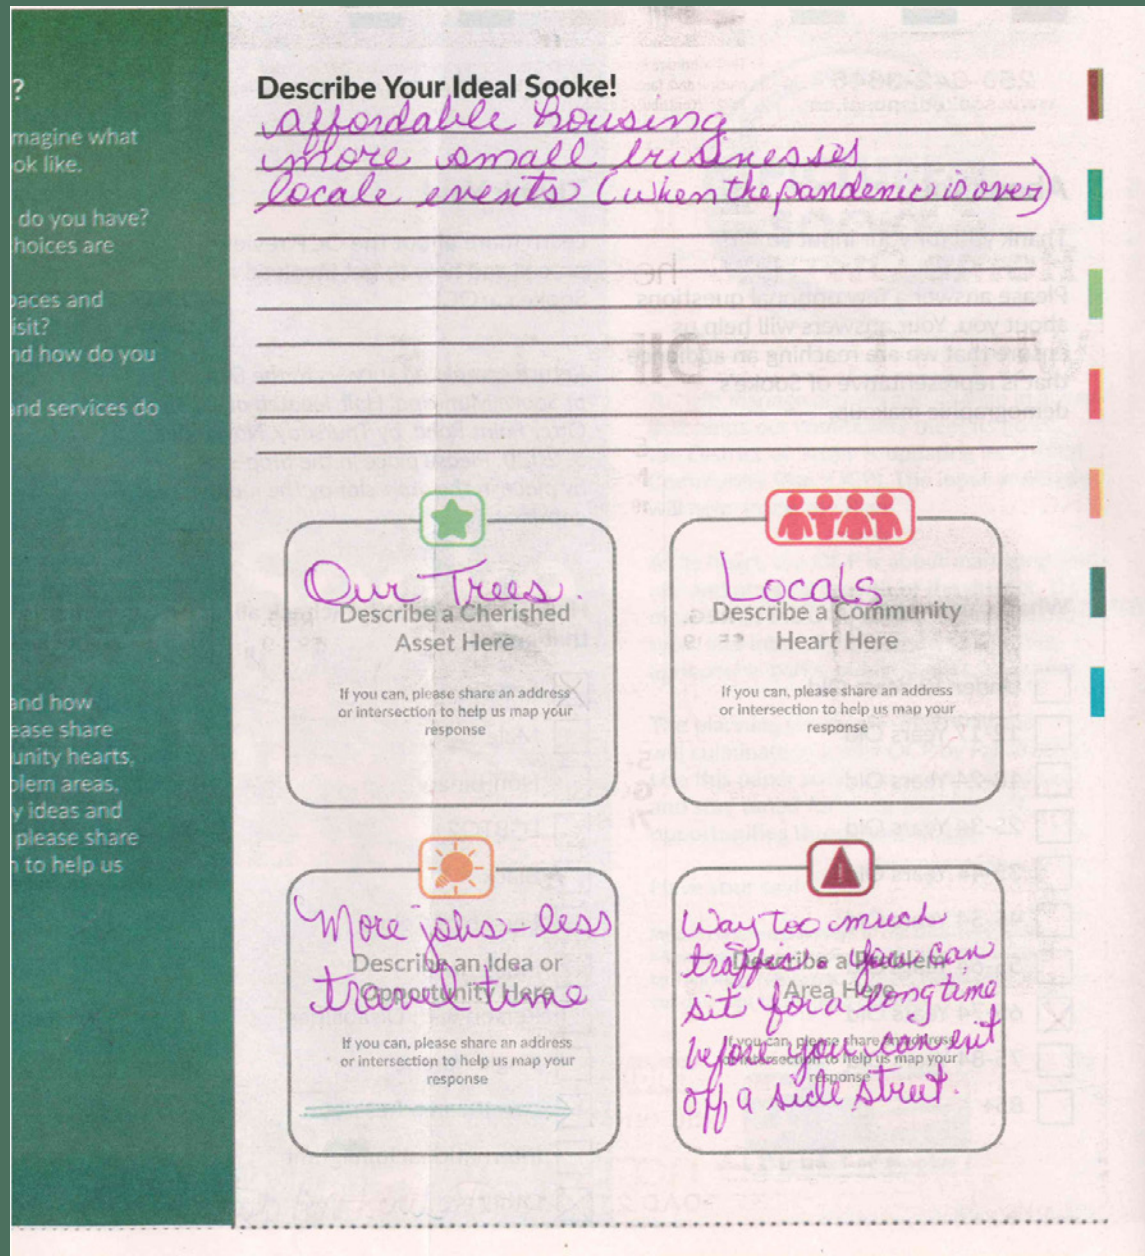 ?
magine what
ok like.
do you have?
hoices are
paces and
isit?
nd how do you
and services do
and how
ease share
unity hearts,
blem areas,
y ideas and
please share
n to help us
Describe Your Ideal Sooke!
affordable housing
more small businesses
locale events (when the pandemic is over)
Our Trees.
Describe a Cherished
Asset Here
If you can, please share an address
or intersection to help us map your
response
Locals
Describe a Community
Heart Here
If you can, please share an address
or intersection to help us map your
response
More jobs - less
Describe an Idea or
travel time
Opportunity Here
If you can, please share an address
or intersection to help us map your
response
Way too much
traffic. You can
Describe a Problem
Area Here
sit for a long time
before you can exit
If you can, please share an address
or intersection to help us map your
response
off a side street.